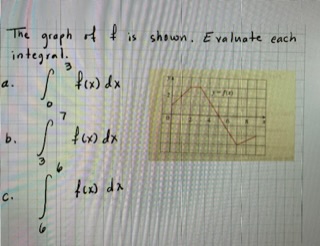 The graph of f is shown. Evaluate each
integral.
a. ∫₀³ f(x) dx
y = f(x)
b. ∫₃⁷ f(x) dx
c. ∫₆⁶ f(x) dx